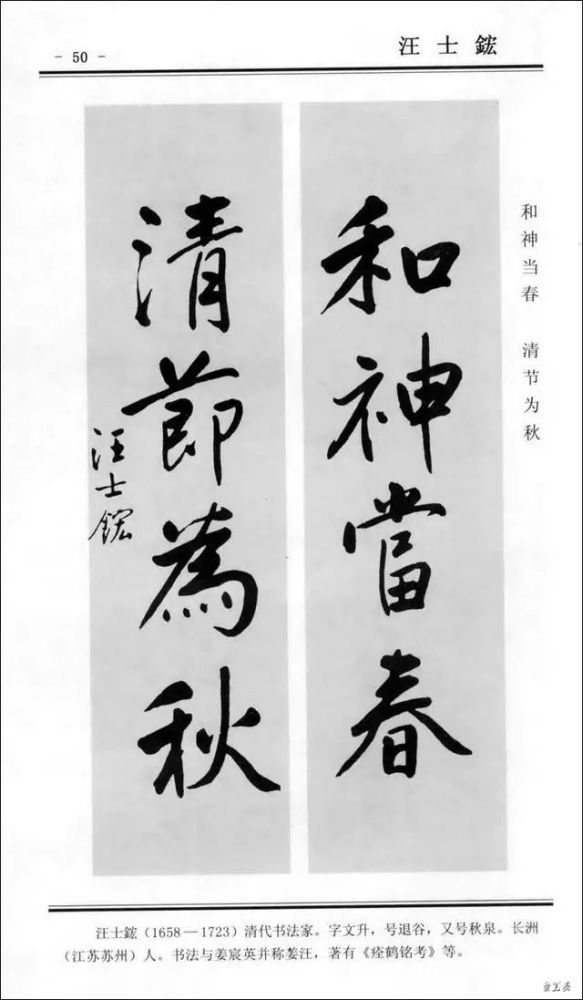 - 50 -
汪士鋐
和神當春
清節為秋
汪士鋐
和神当春 清节为秋
汪士鋐(1658—1723)清代书法家。字文升,号退谷,又号秋泉。长洲
(江苏苏州)人。书法与姜宸英并称姜汪,著有《瘗鹤铭考》等。